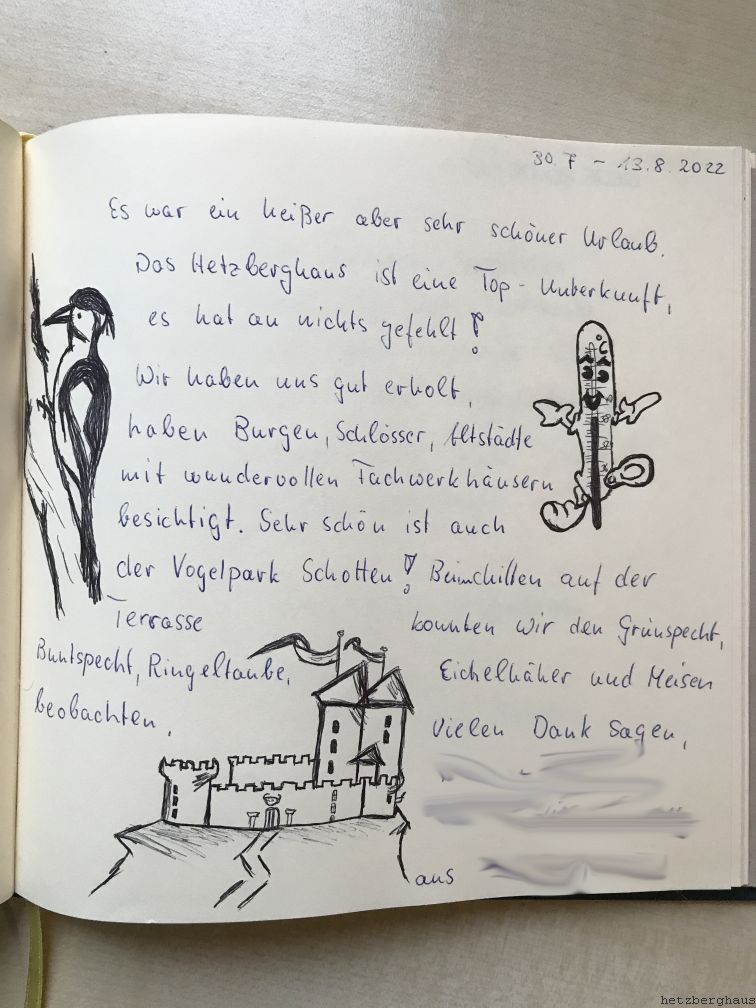 30.7 - 13.8.2022
Es war ein heißer aber sehr schöner Urlaub.
Das Hetzberghaus ist eine Top-Unterkunft,
es hat an nichts gefehlt!
Wir haben uns gut erholt,
haben Burgen, Schlösser, Altstädte
mit wundervollen Fachwerkhäusern
besichtigt. Sehr schön ist auch
der Vogelpark Schotten! Beim chillen auf der
Terrasse konnten wir den Grünspecht,
Buntspecht, Ringeltaube, Eichelhäher und Meisen
beobachten. Vielen Dank sagen,
aus
hetzberghaus